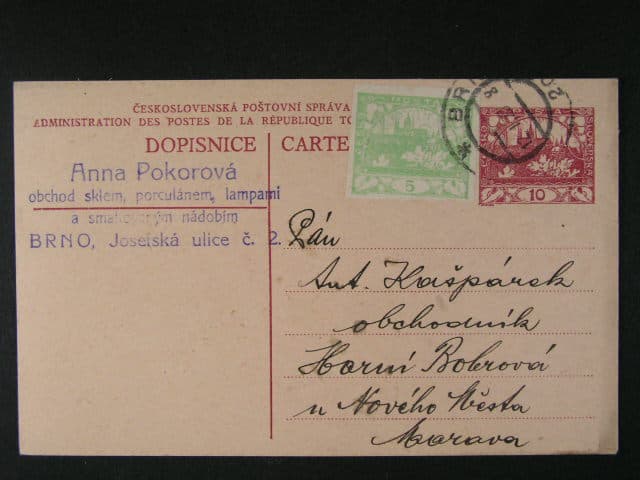 ČESKOSLOVENSKÁ POŠTOVNÍ SPRÁVA
ADMINISTRATION DES POSTES DE LA RÉPUBLIQUE
DOPISNICE CARTE
Anna Pokorová
obchod sklem, porculánem, lampami
a smaltovaným nádobím
BRNO, Josefská ulice č. 2.
POŠTA
5
10
BR
Pán
Ant. Kašpárek
obchodník
Horní Bobrová
u Nového Města
Morava